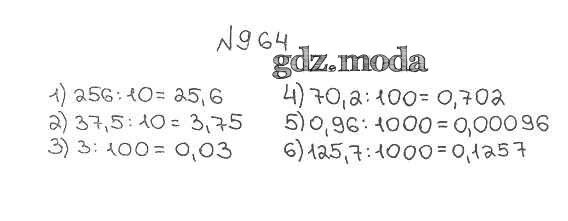 №964
gdz.moda
1) 256:10= 25,6
2) 37,5:10= 3,75
3) 3:100= 0,03
4) 70,2:100= 0,702
5) 0,96:1000= 0,00096
6) 125,7:1000= 0,1257